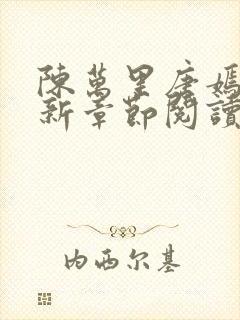 陳萬里唐嫣
新章節閱讀
内西尔基